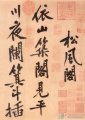 松風閣
依山築閣見平
川夜闌箕斗插